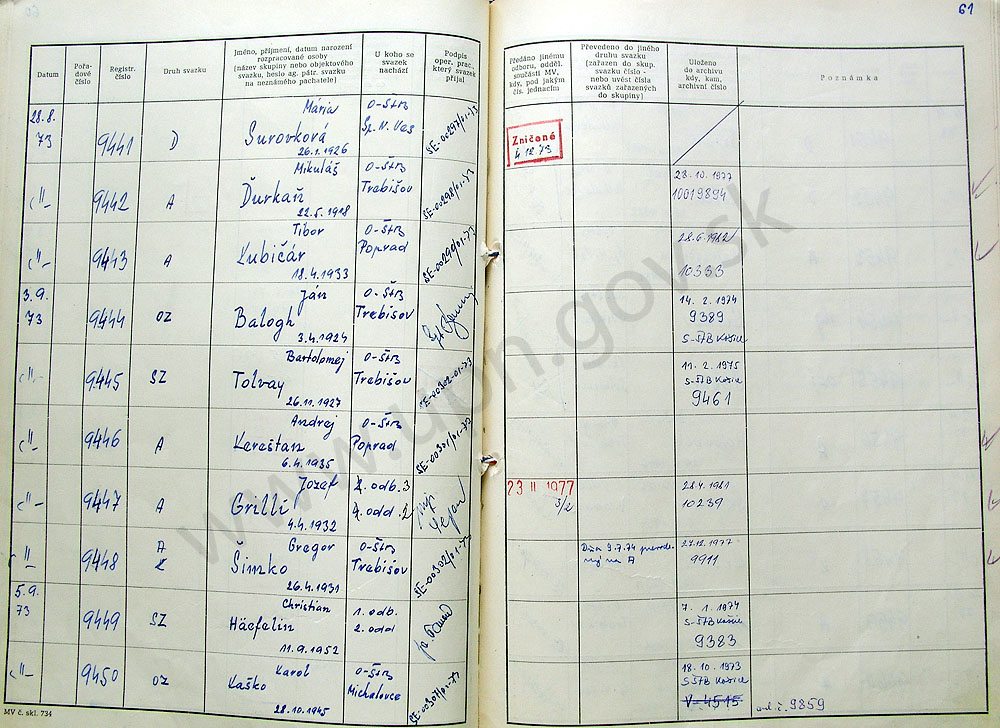 61
Datum
Pořa-
dové
číslo
Registr.
číslo
Druh svazku
Jméno, příjmení, datum narození
rozpracované osoby
(název skupiny nebo objektového
svazku, heslo ag. pátr. svazku
na neznámého pachatele)
U koho se
svazek
nachází
Podpis
oper. prac.,
který svazek
přijal
Předáno jinému
odboru, odděl.
součásti MV,
kdy, pod jakým
čís. jednacím
Převedeno do jiného
druhu svazku
(zařazen do skup.
svazku číslo -
nebo uvést čísla
svazků zařazených
do skupiny)
Uloženo
do archivu
kdy, kam,
archivní číslo
Poznámka
28.8.
73
9441
D
Mária
Surovková
26.1.1926
O-ŠtB
Sp. N. Ves
SE-00297/01-73
Zničené
4 12 73
〃
9442
A
Mikuláš
Ďurkáň
22.5.1918
O-ŠtB
Trebišov
SE-00298/01-73
28.10.1977
10019894
〃
9443
A
Tibor
Kubičár
18.4.1933
O-ŠtB
Poprad
SE-00299/01-73
28.6.1982
10333
3.9.
73
9444
OZ
Ján
Balogh
3.4.1924
O-ŠtB
Trebišov
14. 2. 1974
9389
S-ŠTB Košice
〃
9445
SZ
Bartolomej
Tolvay
26.11.1927
O-ŠtB
Trebišov
SE-00302-01-73
11. 2. 1975
S-ŠTB Košice
9461
〃
9446
A
Andrej
Kereštan
6.4.1935
O-ŠtB
Poprad
SE-00301/01-73
〃
9447
A
Jozef
Grilli
4.4.1932
2. odb. 3
4. odd. 2
23 II 1977
3/2
28.4.1981
10239
〃
9448
A
Gregor
Šimko
26.4.1931
O-ŠtB
Trebišov
SE-00302/01-73
Dňa 9.7.74 prevede-
ný na A
27.12.1977
9911
5.9.
73
9449
SZ
Christian
Häefelin
11.9.1952
1. odb.
2. odd
7. 1. 1974
S-ŠTB Košice
9383
〃
9450
OZ
Karol
Kaško
28.10.1945
O-ŠtB
Michalovce
SE-00307/01-73
18.10.1973
S-ŠTB Košice
V-4515
arch. č. 9859
MV č. skl. 734
www.upn.gov.sk